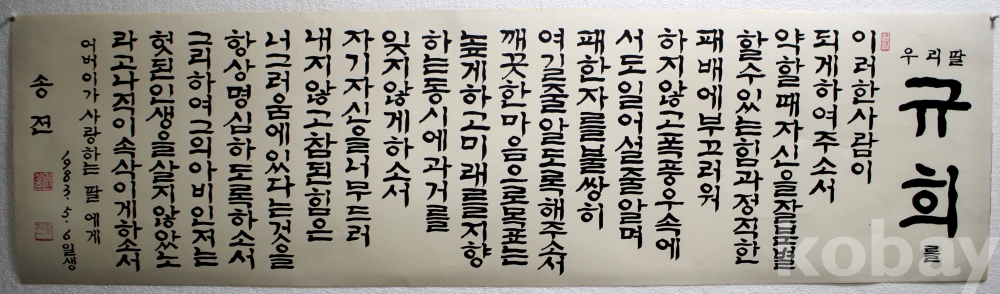 우리딸
규희를
이러한사람이
되게하여주소서
약할때자신을잘분별
할수있는힘과정직한
패배에부끄러워
하지않고폭풍우속에
서도일어설줄알며
패한자를불쌍히
여길줄알도록해주소서
깨끗한마음으로목표는
높게하고미래를지향
하는동시에과거를
잊지않게하소서
자기자신을너무드러
내지않고참된힘은
너그러움에있다는것을
항상명심하도록하소서
그리하여그의아비인저는
헛된인생을살지않았노
라고나직이속삭이게하소서
어버이가 사랑하는 딸에게
1983.5.6일생
송 젼
kobay